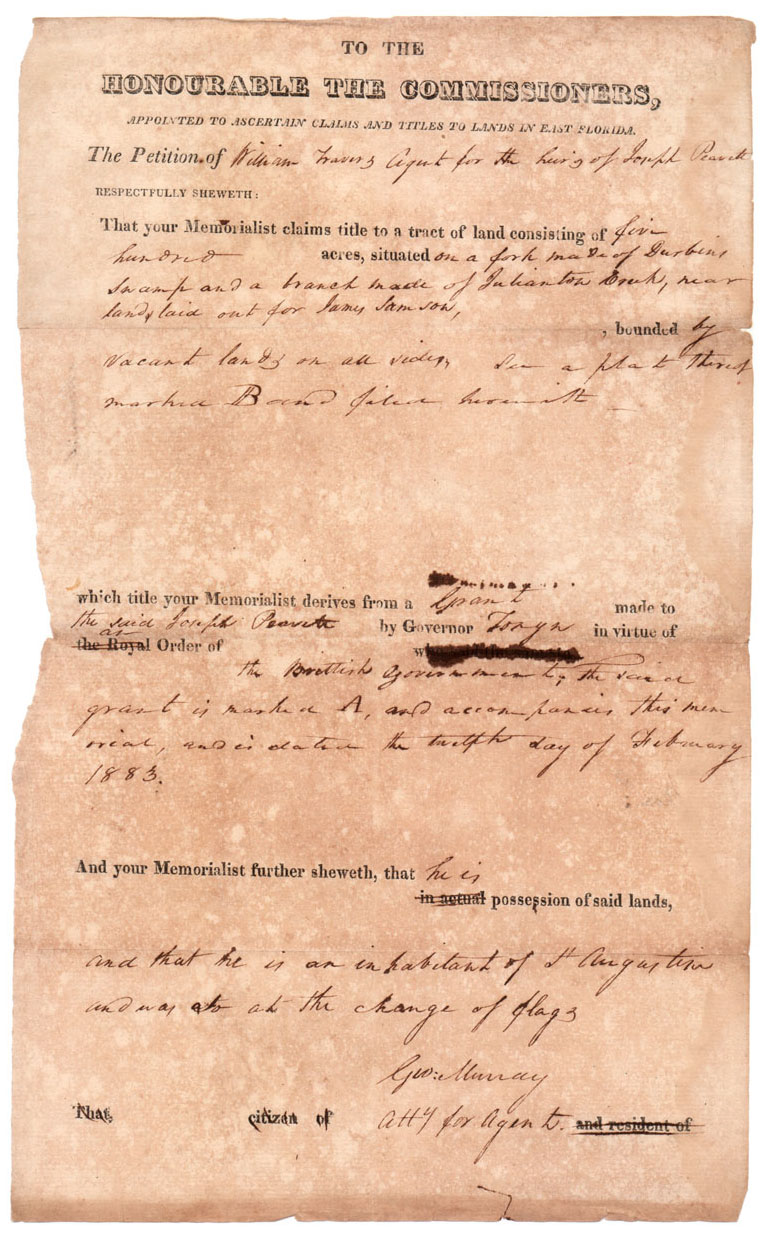 TO THE
HONOURABLE THE COMMISSIONERS,
APPOINTED TO ASCERTAIN CLAIMS AND TITLES TO LANDS IN EAST FLORIDA.
The Petition of William Travers Agent for the heirs of Joseph Peavett
RESPECTFULLY SHEWETH:
That your Memorialist claims title to a tract of land consisting of five
hundred acres, situated on a fork made of Durbins
Swamp and a branch made of Julianton Creek, near
lands laid out for James Samson,
, bounded by
vacant lands on all sides, see a plat thereof
marked B and filed herewith
which title your Memorialist derives from a Grant made to
the said Joseph Peavett by Governor Tonyn in virtue of
the Royal Order of
the Brittish Government, the said
grant is marked A, and accompanies this mem
orial, and is dated the twelfth day of February
1883.
And your Memorialist further sheweth, that he is
in actual possession of said lands,
and that he is an inhabitant of St Augustine
and was so at the change of flags
Geo: Murray
That, citizen of Atty for Agent. and resident of